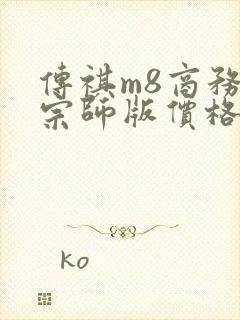 傳祺m8商務
宗師版價格
ko